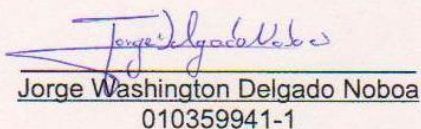 Jorge Delgado Noboa
Jorge Washington Delgado Noboa
010359941-1